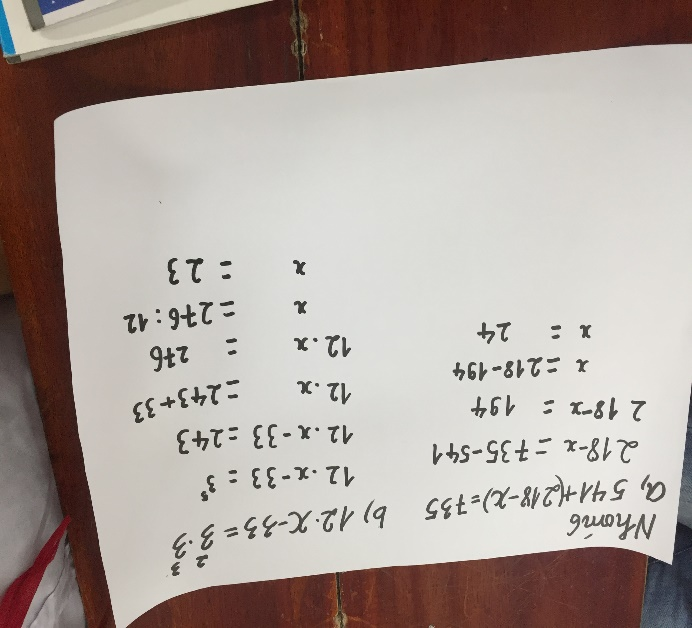 Nhóm6
a, 541+(218-x)=735
218-x = 735-541
218-x = 194
x = 218-194
x = 24
b) 12.x-33 = 3². 3³
12.x-33 = 3⁵
12.x-33 = 243
12.x = 243+33
12.x = 276
x = 276:12
x = 23